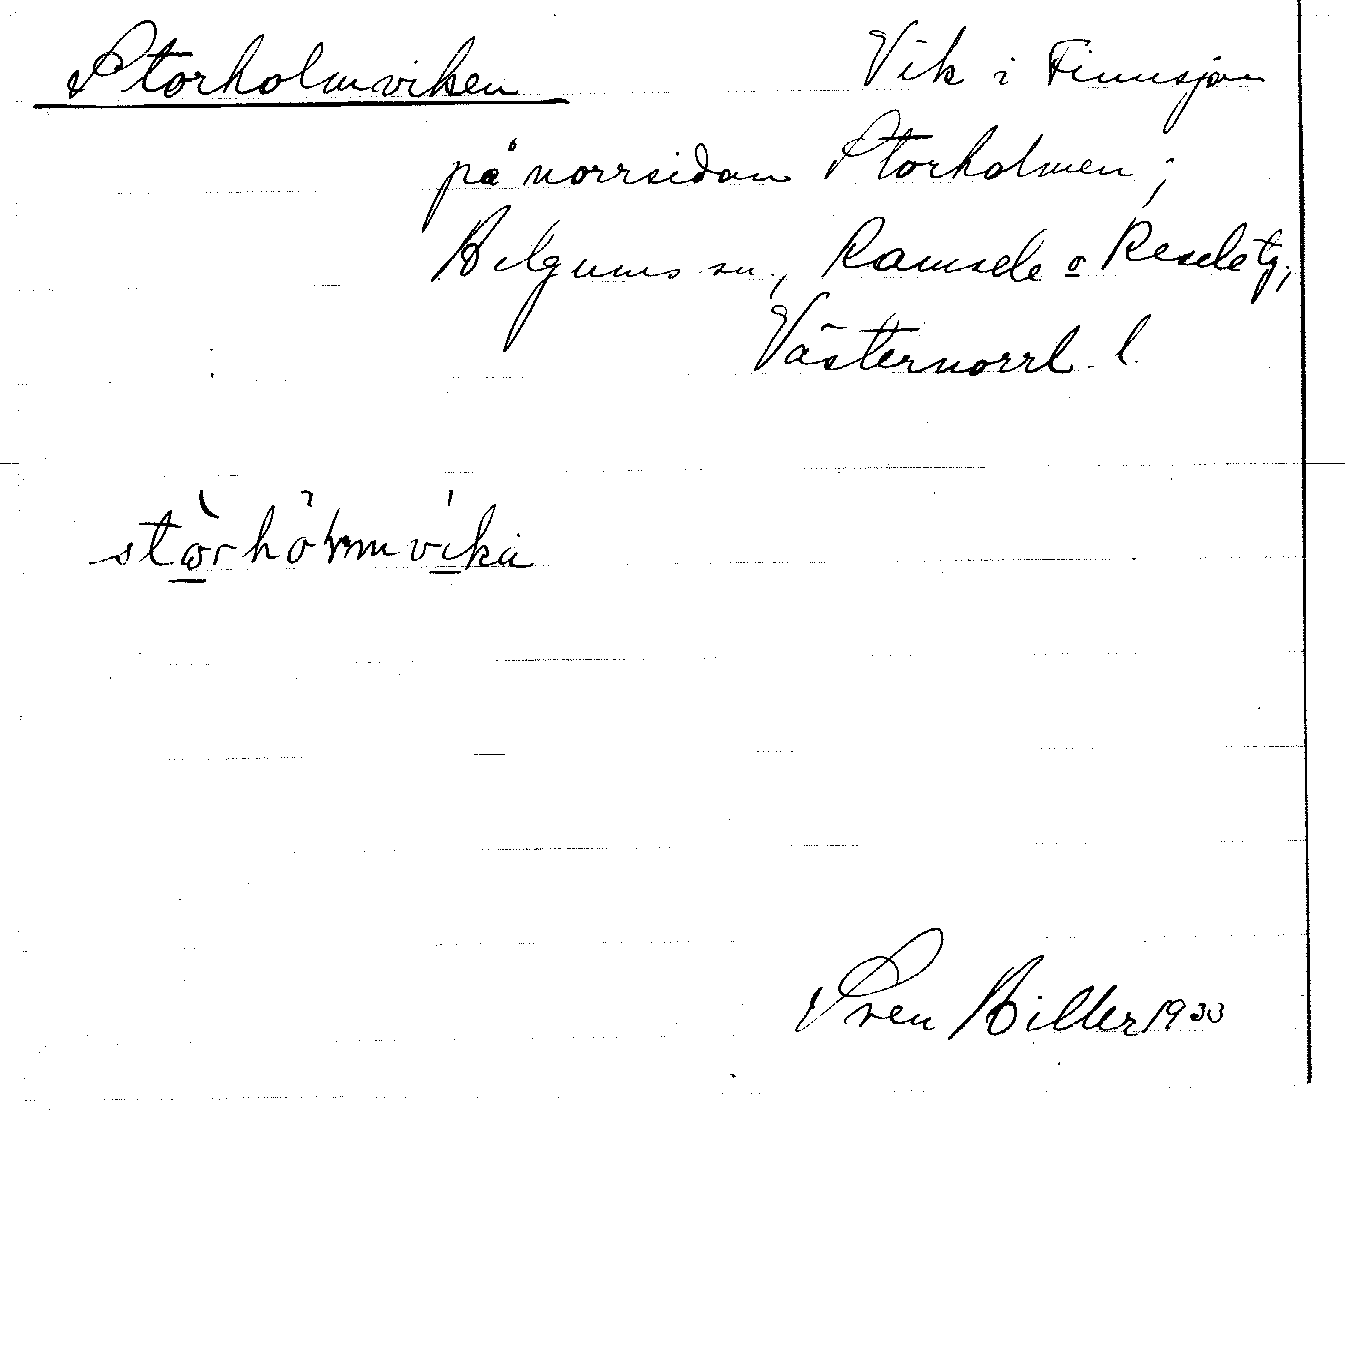 Storholmviken Vik i Finnsjön
på norrsidan Storholmen;
Helgums sn, Ramsele o Resele tg,
Västernorrl. l.
Sven Hiller 1933